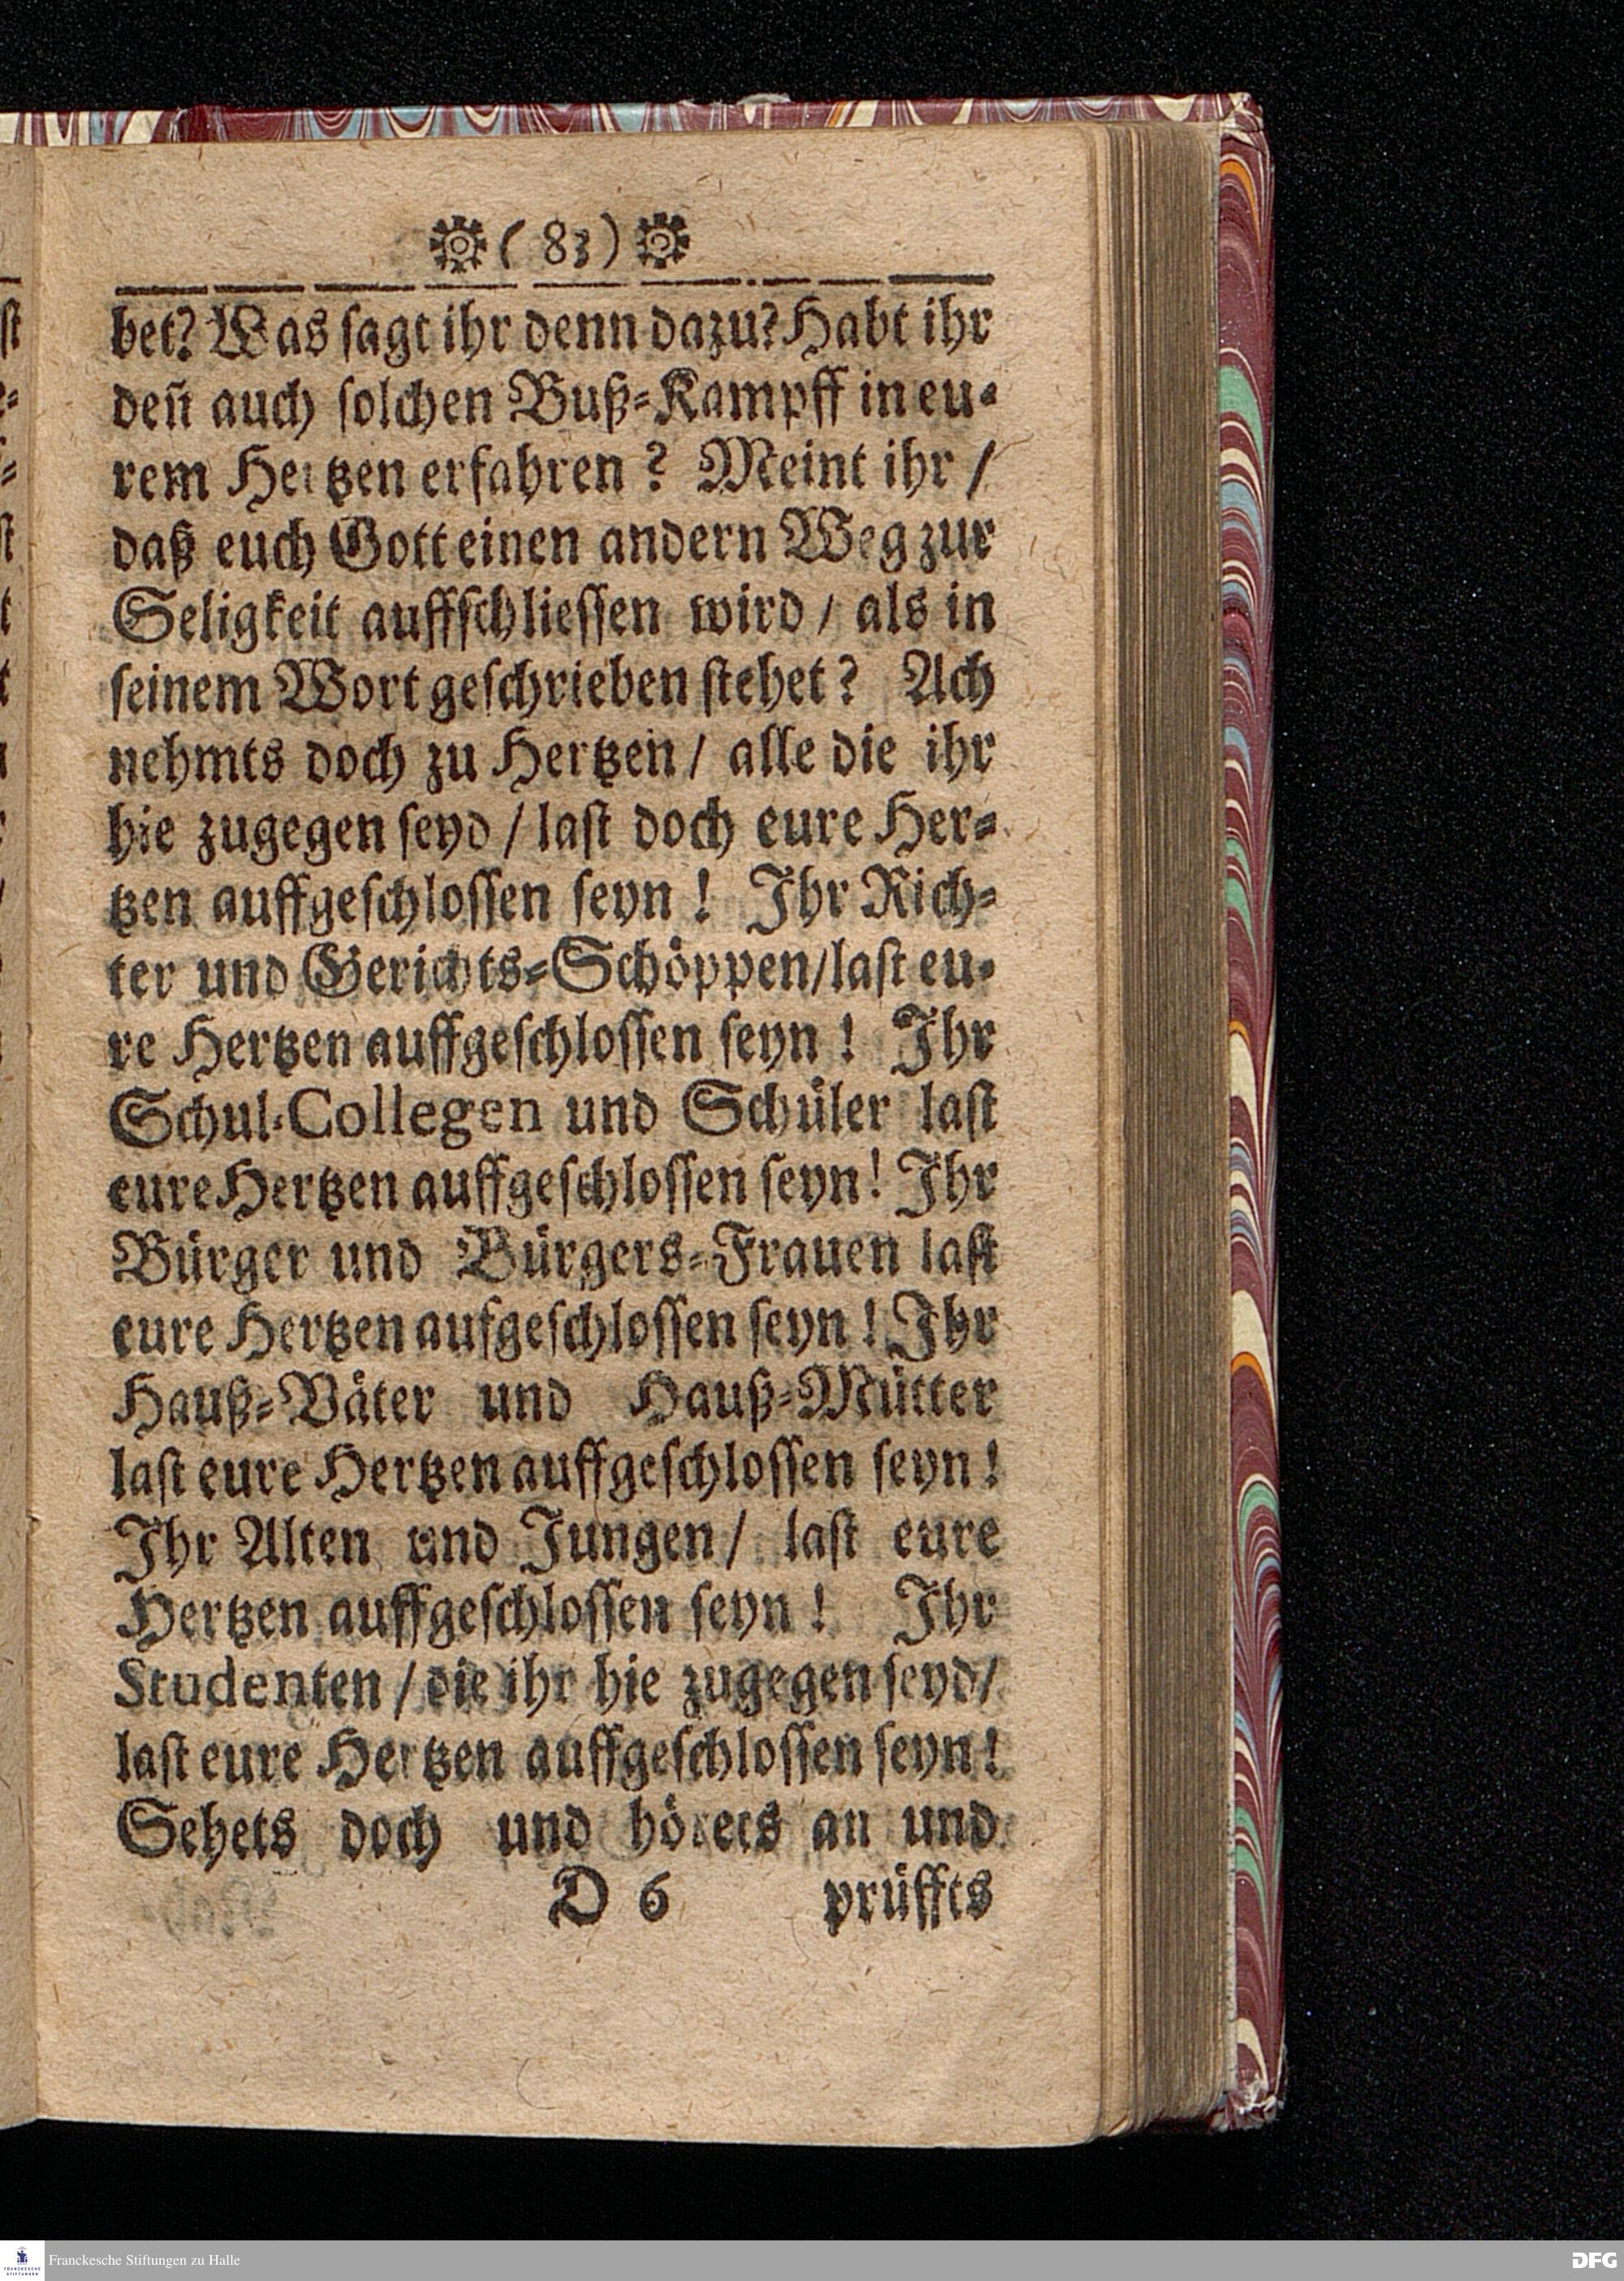 ( 83 )
bet? Was sagt ihr denn dazu? Habt ihr
deñ auch solchen Buß-Kampff in eu-
rem Hertzen erfahren ? Meint ihr /
daß euch Gott einen andern Weg zur
Seligkeit auffschliessen wird / als in
seinem Wort geschrieben stehet ? Ach
nehmts doch zu Hertzen / alle die ihr
hie zugegen seyd / last doch eure Her-
tzen auffgeschlossen seyn ! Ihr Rich-
ter und Gerichts-Schöppen / last eu-
re Hertzen auffgeschlossen seyn ! Ihr
Schul-Collegen und Schüler last
eure Hertzen auffgeschlossen seyn! Ihr
Bürger und Bürgers-Frauen last
eure Hertzen aufgeschlossen seyn ! Ihr
Hauß-Väter und Hauß-Mütter
last eure Hertzen auffgeschlossen seyn !
Ihr Alten und Jungen / last eure
Hertzen auffgeschlossen seyn ! Ihr
Studenten / die ihr hie zugegen seyd /
last eure Hertzen auffgeschlossen seyn !
Sehets doch und hörets an und
D 6 prüffts
Franckesche Stiftungen zu Halle
DFG